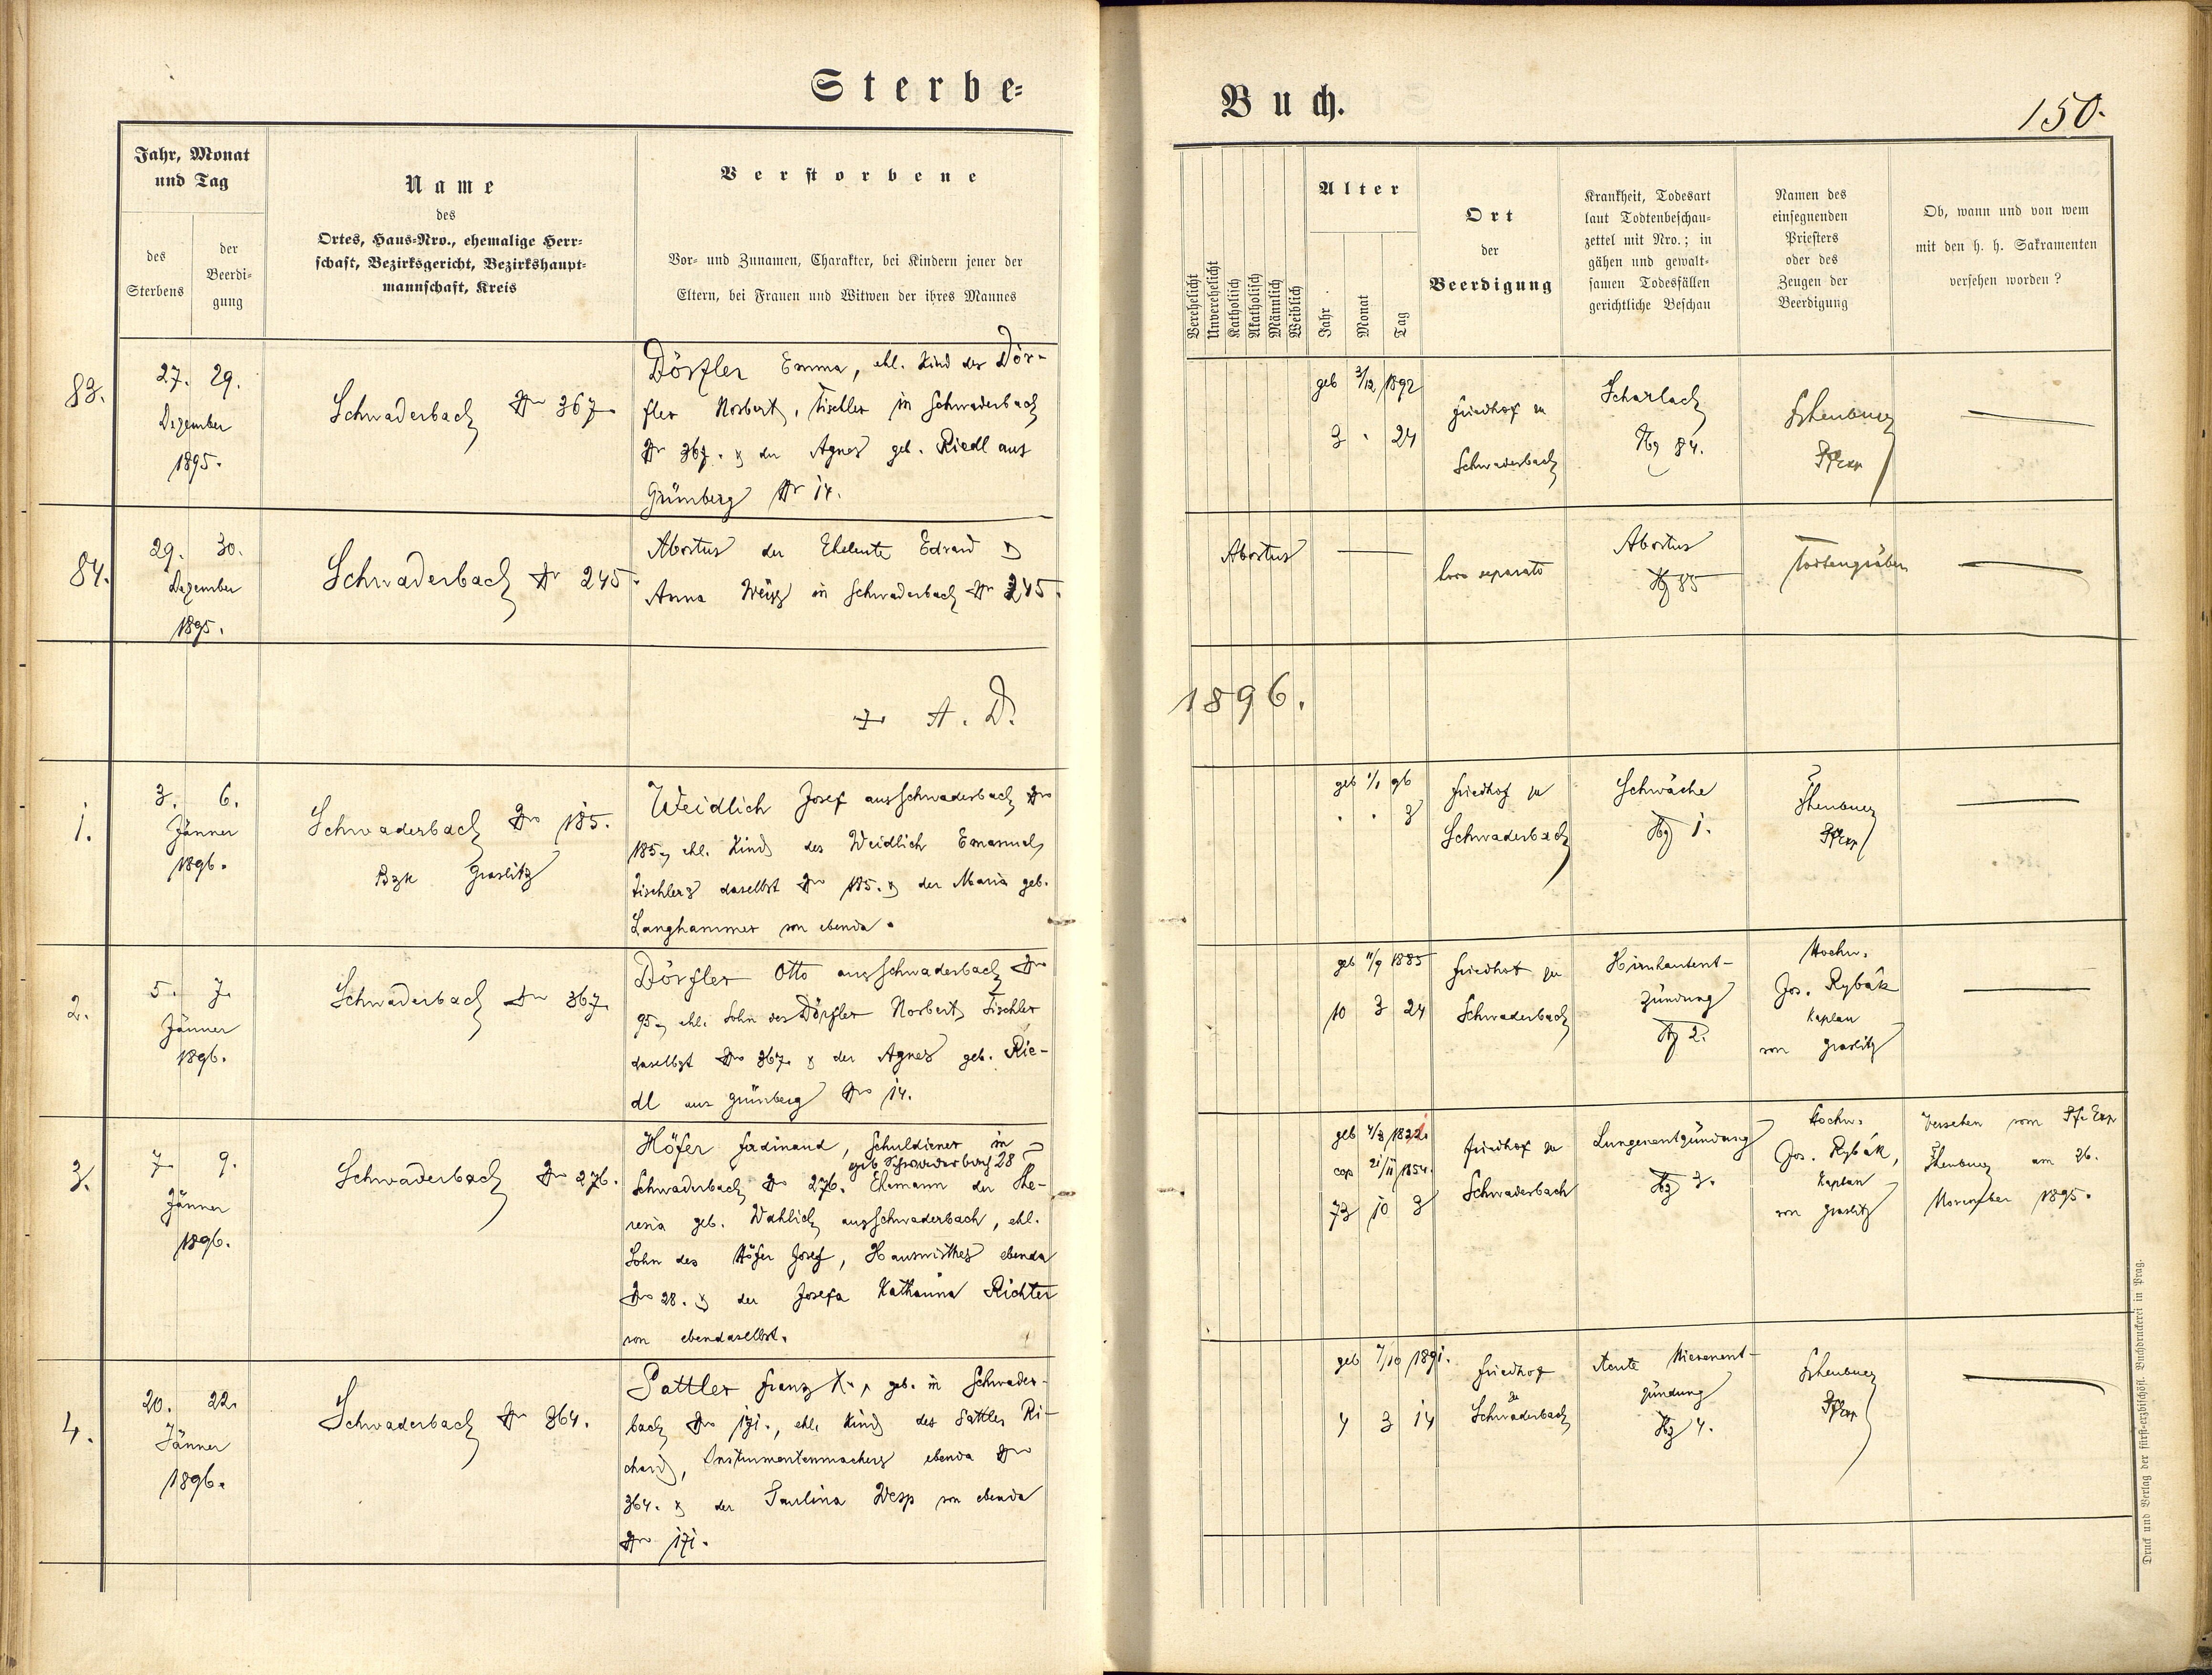 Sterbe-
Buch.
150.
Jahr, Monat
und Tag
des
Sterbens
der
Beerdi-
gung
Name
des
Ortes, Haus-Nro., ehemalige Herr-
schaft, Bezirksgericht, Bezirkshaupt-
mannschaft, Kreis
Verstorbene
Vor- und Zunamen, Charakter, bei Kindern jener der
Eltern, bei Frauen und Witwen der ihres Mannes
Verehelicht
Unverehelicht
Katholisch
Akatholisch
Männlich
Weiblich
Alter
Jahr
Monat
Tag
Ort
der
Beerdigung
Krankheit, Todesart
laut Todtenbeschau-
zettel mit Nro.; in
gähen und gewalt-
samen Todesfällen
gerichtliche Beschau
Namen des
einsegnenden
Priesters
oder des
Zeugen der
Beerdigung
Ob, wann und von wem
mit den h. h. Sakramenten
versehen worden?
83.
27. 29.
Dezember
1895.
Schwaderbach Nr 367.
Dörfler Emma, ehl. Kind des Dör-
fler Norbert, Tischler in Schwaderbach
Nr 367. & der Agnes geb. Riedl aus
Grünberg Nr 14.
geb 3/12 1892
3 . 24
Friedhof zu
Schwaderbach
Scharlach
84.
PfExp
84.
29. 30.
Dezember
1895.
Schwaderbach Nr 245.
Abortus der Eheleute Edvard &
Anna Weiss in Schwaderbach Nr 245.
Abortus
loco separato
Abortus
85
Todtengräber
A. D.
1896.
1.
3. 6.
Jänner
1896.
Schwaderbach Nro 185.
Bzk Graslitz
Weidlich Josef aus Schwaderbach Nro
185, ehl. Kind des Weidlich Emanuel,
Tischlers daselbst Nro 185. & der Maria geb.
Langhammer von ebenda.
geb 1/1 96
. . 3
Friedhof zu
Schwaderbach
Schwäche
1.
PfExp
2.
5. 7.
Jänner
1896.
Schwaderbach Nro 367
Dörfler Otto aus Schwaderbach Nro
95, ehl. Sohn des Dörfler Norbert, Tischler
daselbst Nro 367. & der Agnes geb. Rie-
dl aus Grünberg Nro 14.
geb 11/9 1885
10 3 24
Friedhof zu
Schwaderbach
Hirnhautent-
zündung
2.
Hochw.
Jos. Rybák
Kaplan
von Graslitz
3.
7. 9.
Jänner
1896.
Schwaderbach Nro 276.
Höfer Ferdinand, Schuldiener in
geb Schwaderbach 28
Schwaderbach Nro 276. Ehemann der The-
resia geb. Wahlich aus Schwaderbach, ehl.
Sohn des Höfer Josef, Hauswirthes ebenda
Nro 28. & der Josefa Katharina Richter
von ebendaselbst.
geb 4/3 1822.
cop 21/11 1854.
73 10 3
Friedhof zu
Schwaderbach
Lungenentzündung
3.
Hochw.
Jos. Rybák,
Kaplan
von Graslitz
Versehen vom Pf. Exp
am 26.
November 1895.
4.
20. 22.
Jänner
1896.
Schwaderbach Nr 364.
Sattler Franz X., geb. in Schwader-
bach Nro 171., ehl. Kind des Sattler Ri-
chard, Instrumentenmachers ebenda Nro
364. & der Paulina Wesp von ebenda
Nro 171.
geb 7/10 1891.
4 3 14
Friedhof
zu
Schwaderbach
Acute Nierenent-
zündung
4.
PfExp
Druck und Verlag der fürst-erzbischöfl. Buchdruckerei in Prag.